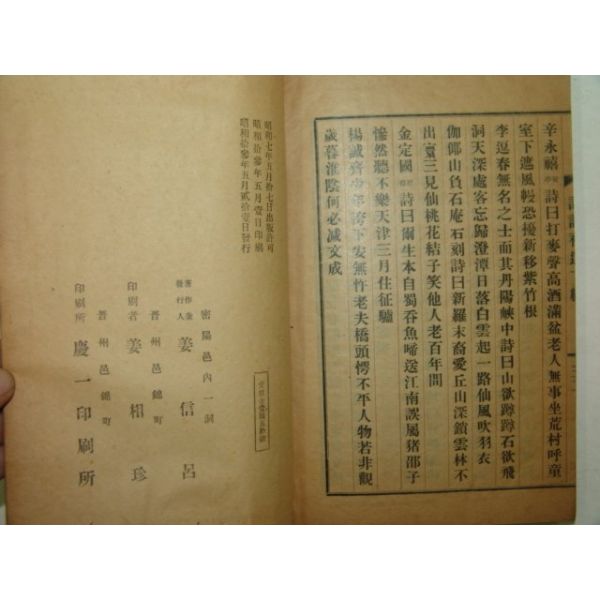 辛永禧詩曰打麥聲高酒滿盆老人無事坐荒村呼童
室下遮風幔恐擾新移紫竹根
李逗春無名之士而其丹陽峽中詩曰山欲蹲蹲石欲飛
洞天深處客忘歸澄潭日落白雲起一路仙風吹羽衣
伽倻山負石庵石刻詩曰新羅末裔愛丘山深鎖雲林不
出寰三見仙桃花結子笑他人老百年間
金定國詩曰爾生本自蜀吞魚啼送江南誤屬猪邵子
慘然聽不樂天津三月住征驢
楊誠齊少年胯下安無忤老夫橋頭愕不平人物若非觀
歲暮淮陰何必减文成
昭和七年五月拾七日出版許可
昭和拾參年五月壹日印刷
昭和拾參年五月貳拾壹日發行
密陽邑內一洞
著作兼發行人 姜信呂
晋州邑錦町
印刷者 姜相珍
晋州邑錦町
印刷所 慶一印刷所